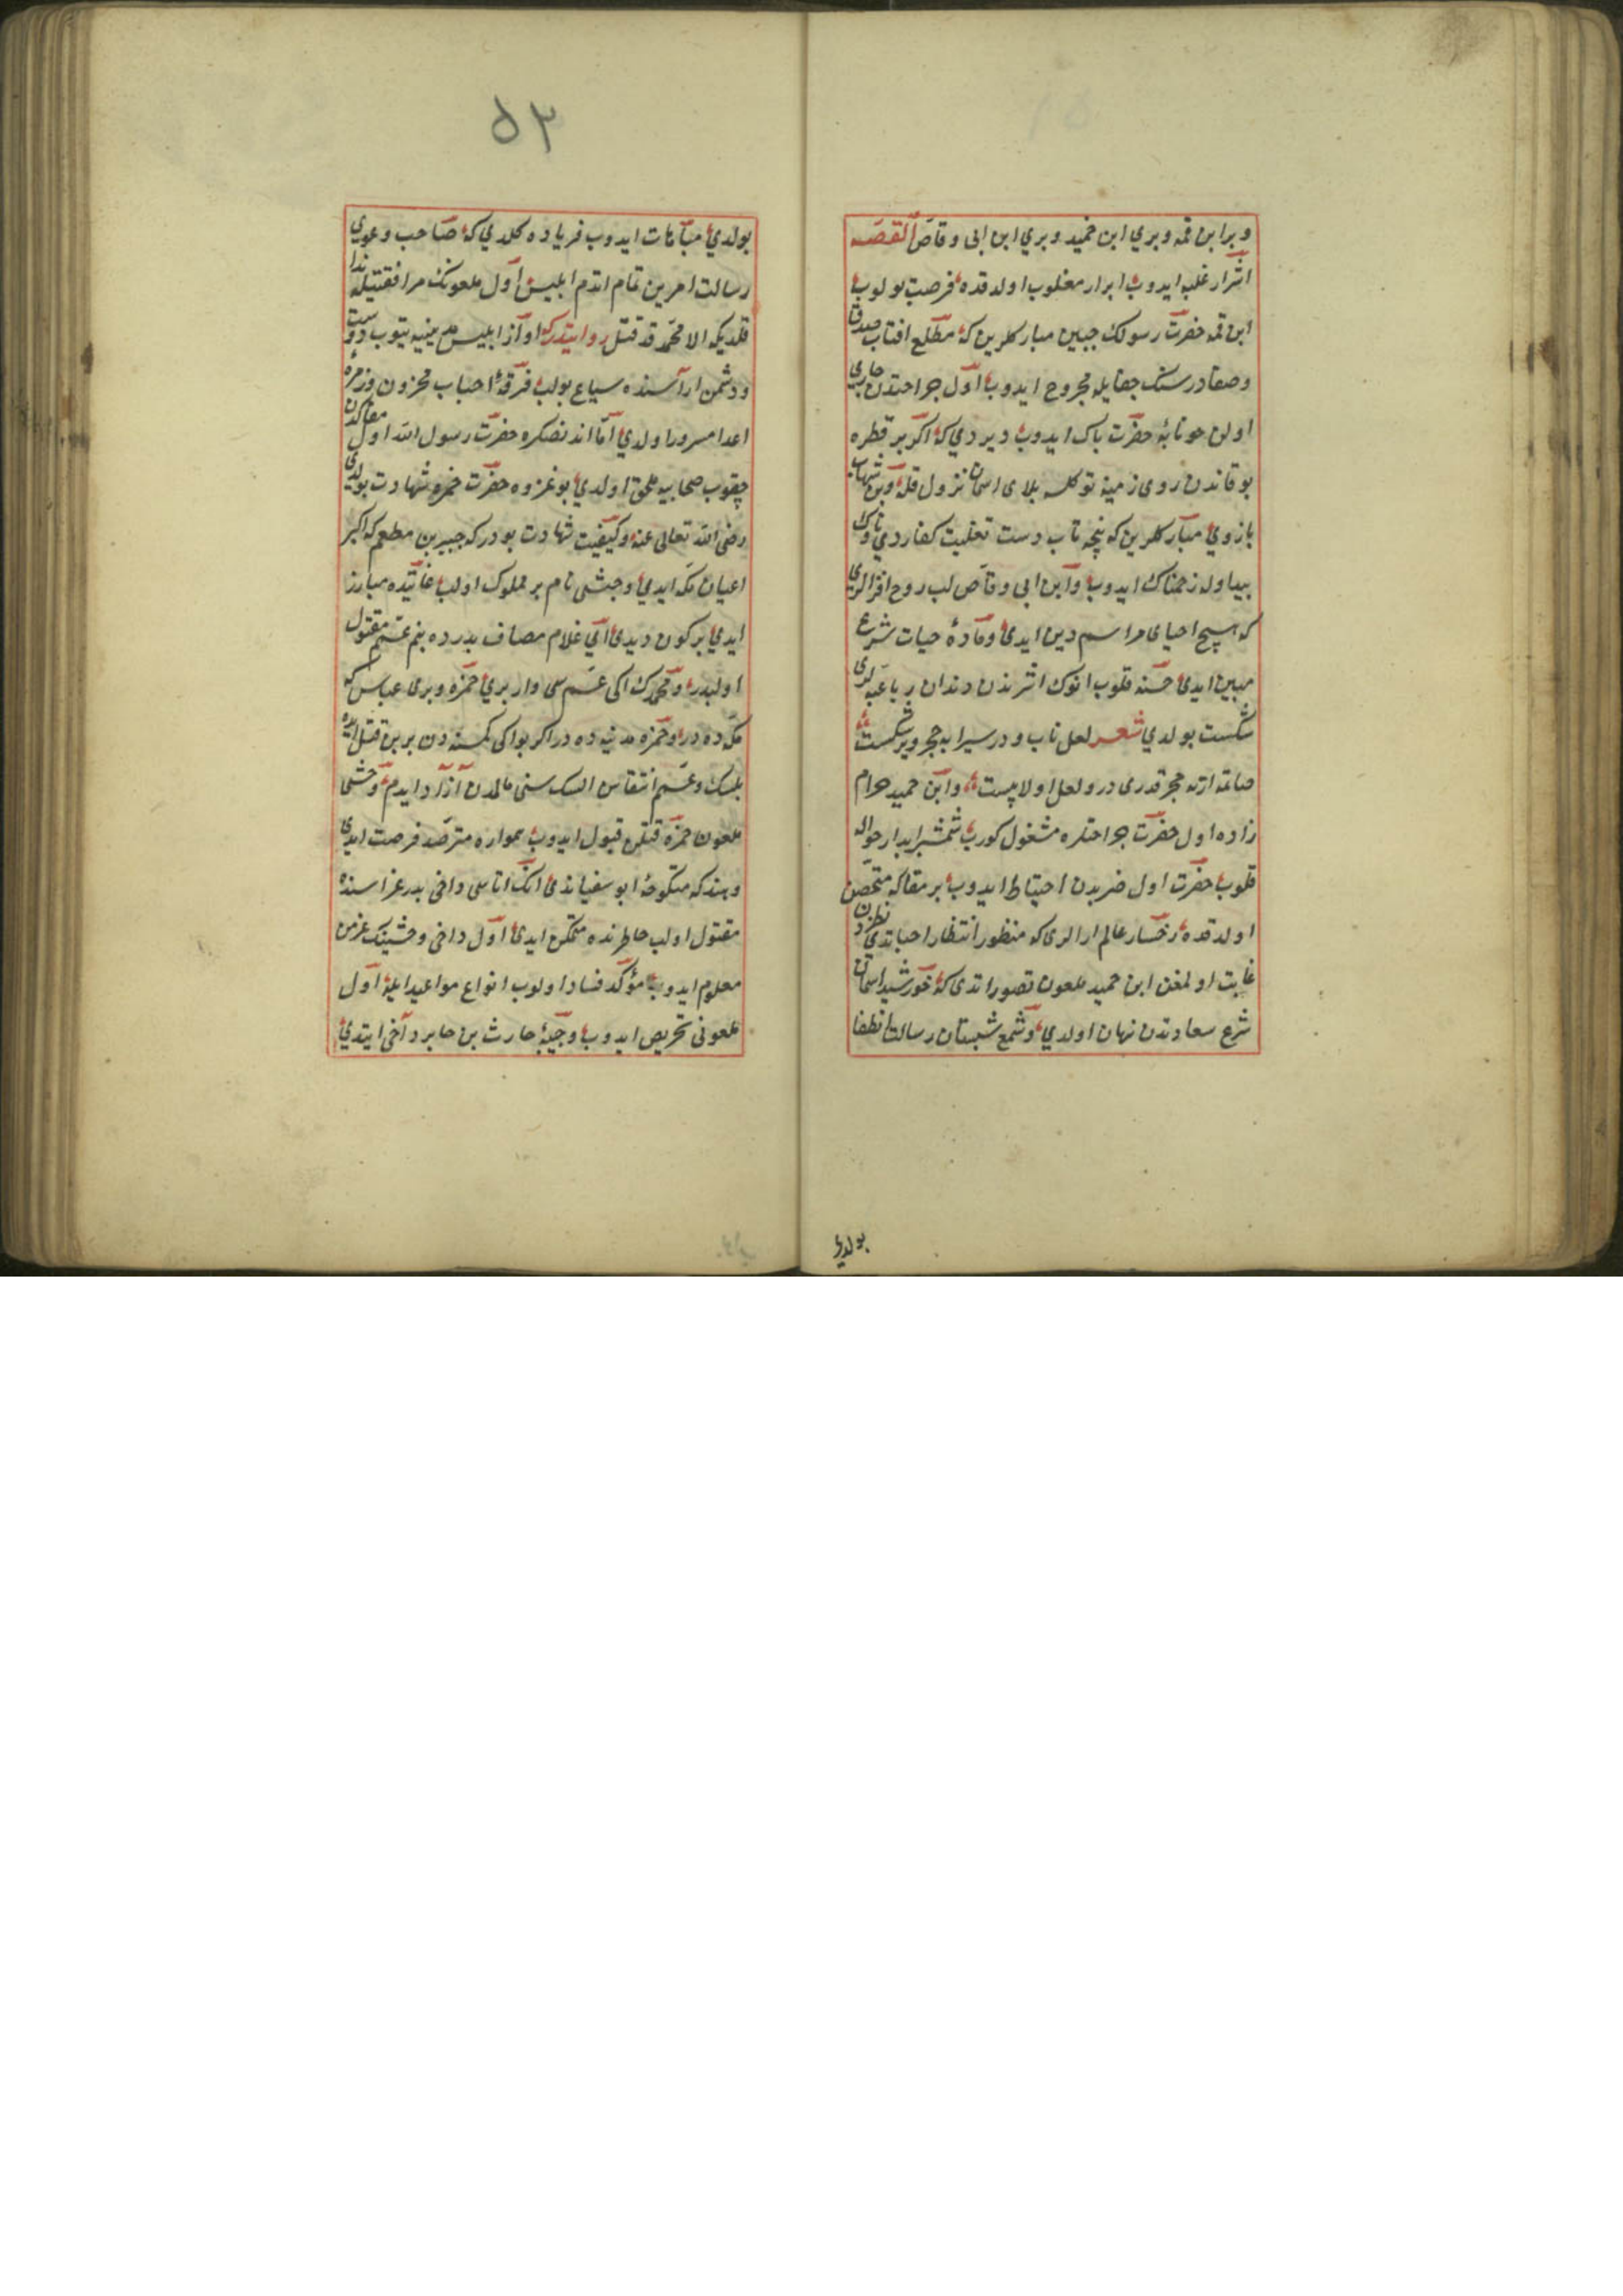 وبرابن قمه وبری ابن حمید وبری ابن ابی وقاص القصه
اشرار غلبه ایدوب ابرار مغلوب اولدقده فرصت بولوب
ابن قمه حضرت رسولك جبین مبارکلرین که مطلع افتاب صدق
وصفادر سنك جفایله مجروح ایدوب اول جراحتدن جاری
اولن خونابهٔ حضرت پاك ایدوب دیردی که اکر بر قطره
بو قاندن روی زمینه توکلسه بلای اسمان نزول قله وبن شهاب
بازوی مبارکلرین که پنجه تاب دست تغلیت کفاردی ناوك
بیداوله زخمناك ایدوب وابن ابی وقاص لب روح افزالری
که مسیح احیای مراسم دین ایدی ومادهٔ حیات شرع
مبین ایدی خسته قلوب انوك اثرندن دندان رباعیه لری
شکست بولدی شعر لعل ناب ودر سیرابه حجر ویر شکست
صانمه ارته حجر قدری در ولعل اولا پست وابن حمید حرام
زاده اول حضرت جراحتلره مشغول کورب شمشیر ابدار حواله
قلوب حضرت اول ضربدن احتیاط ایدوب بر مغاکه متحصن
اولدقده رخسار عالم ارالری که منظور انتظار احبا ایدی نظردن
غایت اولمغن ابن حمید ملعون تصور اتدی که خورشید اسمان
شرع سعادتدن نهان اولدی وشمع شبستان رسالت انطفا
بولدی
۵۳
بولدی مباهات ایدوب فریاده کلدی که صاحب دعوی
رسالت امرین تمام اتدم ابلیس اول ملعونك مرافقتیله ندا
قلدیکه الا محمد قد قتل روایتدرکه اواز ابلیس مدینیه یتوب دوست
ودشمن اراسنده سیاع بولب فرقهٔ احباب محزون وزمرهٔ
اعدا مسرور اولدی اما اندنصکره حضرت رسول الله اول مغاکدن
چقوب صحابیه ملحق اولدی بو غزوه حضرت حمزه شهادت بولدی
رضی الله تعالی عنه وکیفیت شهادت بودرکه جبیر بن مطعم که اکبر
اعیان مکه ایدی وحشی نام بر مملوك اولب غایتده مبارز
ایدی بر کون دیدی ای غلام مصاف بدرده بنم عمم مقتول
اولبدر ومحمدك اکی عمسی وار بری حمزه وبری عباس که
مکه ده در وحمزه مدینه ده در اکر بو اکی کمسنه دن برین قتل ایده
بلسك وعمم انتقامن السك سنی مالمدن ازاد ایدم وحشی
ملعون حمزه قتلن قبول ایدوب همواره مترصد فرصت ایدی
وهند که منکوحهٔ ابو سفیاندی انك اتاسی داخی بدر غزاسنده
مقتول اولب خاطرنده متمکن ایدی اول داخی وحشینك عزمن
معلوم ایدوب مؤکد فساد اولوب انواع مواعید ایله اول
ملعونی تحریص ایدوب وجیهٔ حارث بن حابر داخی ایتدی